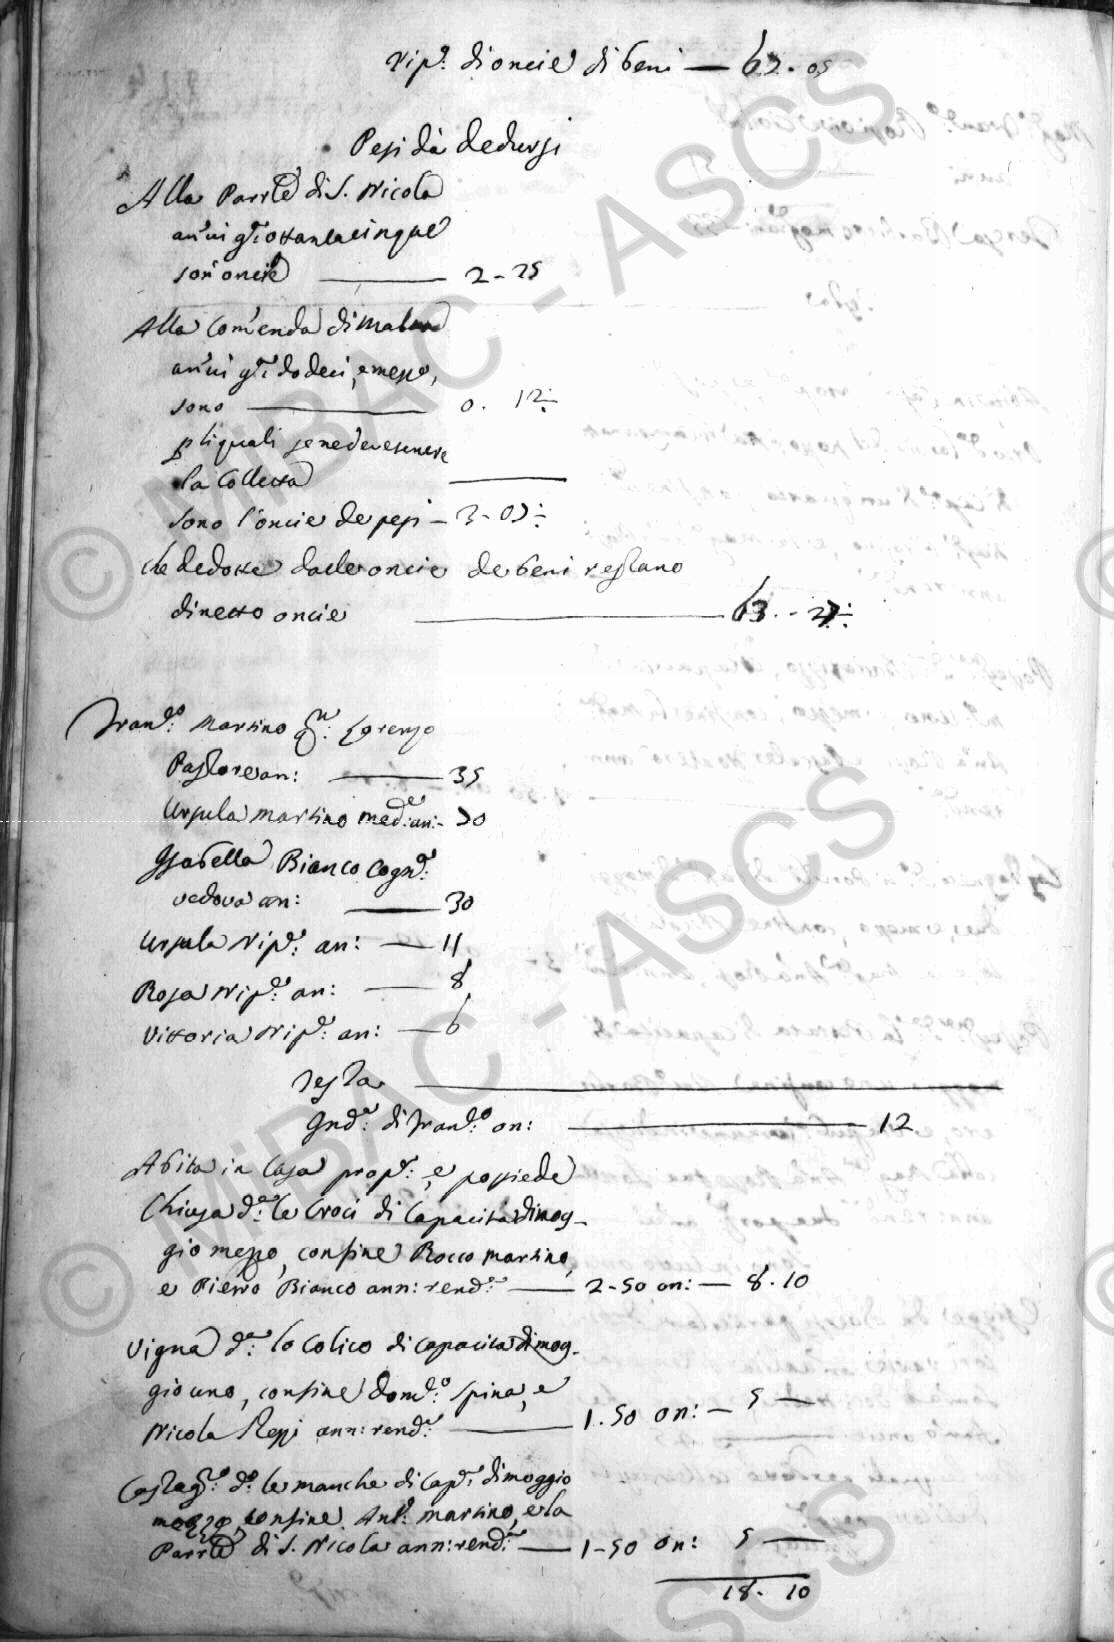 Rip.ª di oncie di beni — 67. 05
Pesi da dedursi
Alla Parr.le di S. Nicola
annui g.ni ottantacinque
son'oncie — 2-25
Alla Com'enda di Malta
annui g.ni dodeci, e mezzo,
sono — 0. 12:
p li quali se ne deve esenere
la Colletta
Sono l'oncie de pesi — 3-07:
che dedotte dalle oncie de beni restano
di netto oncie — 63. - 27:
Fran.co Martino q.m Lorenzo
Pastore an: — 35
Ursula Martino med.e an: - 70
Isabella Bianco Cogn.ª
vedova an: — 30
Ursula Nip.e an: — 11
Rosa Nip.e an: — 8
Vittoria Nip.e an: — 6
Testa —
Ind.ª di Fran.co on: — 12
Abita in Casa prop.ª, e possiede
Chiusa d.ª le Croci di Capacità di mog-
gio mezzo, confine Rocco Martino,
e Pietro Bianco ann: rend.ª — 2-50 on: — 8. 10
Vigna d.ª lo Colico di capacità di mog-
gio uno, confine Dom.co Spina, e
Nicola Reppi ann: rend.ª — 1. 50 on: — 5 —
Castag.to d.o le manche di Cap.tà di moggio
mezzo, confine Ant.o Martino, e la
Parr.le di S. Nicola ann: rend.ª — 1-50 on: 5 —
18. 10
© MiBAC - ASCS
© MiBAC - ASCS